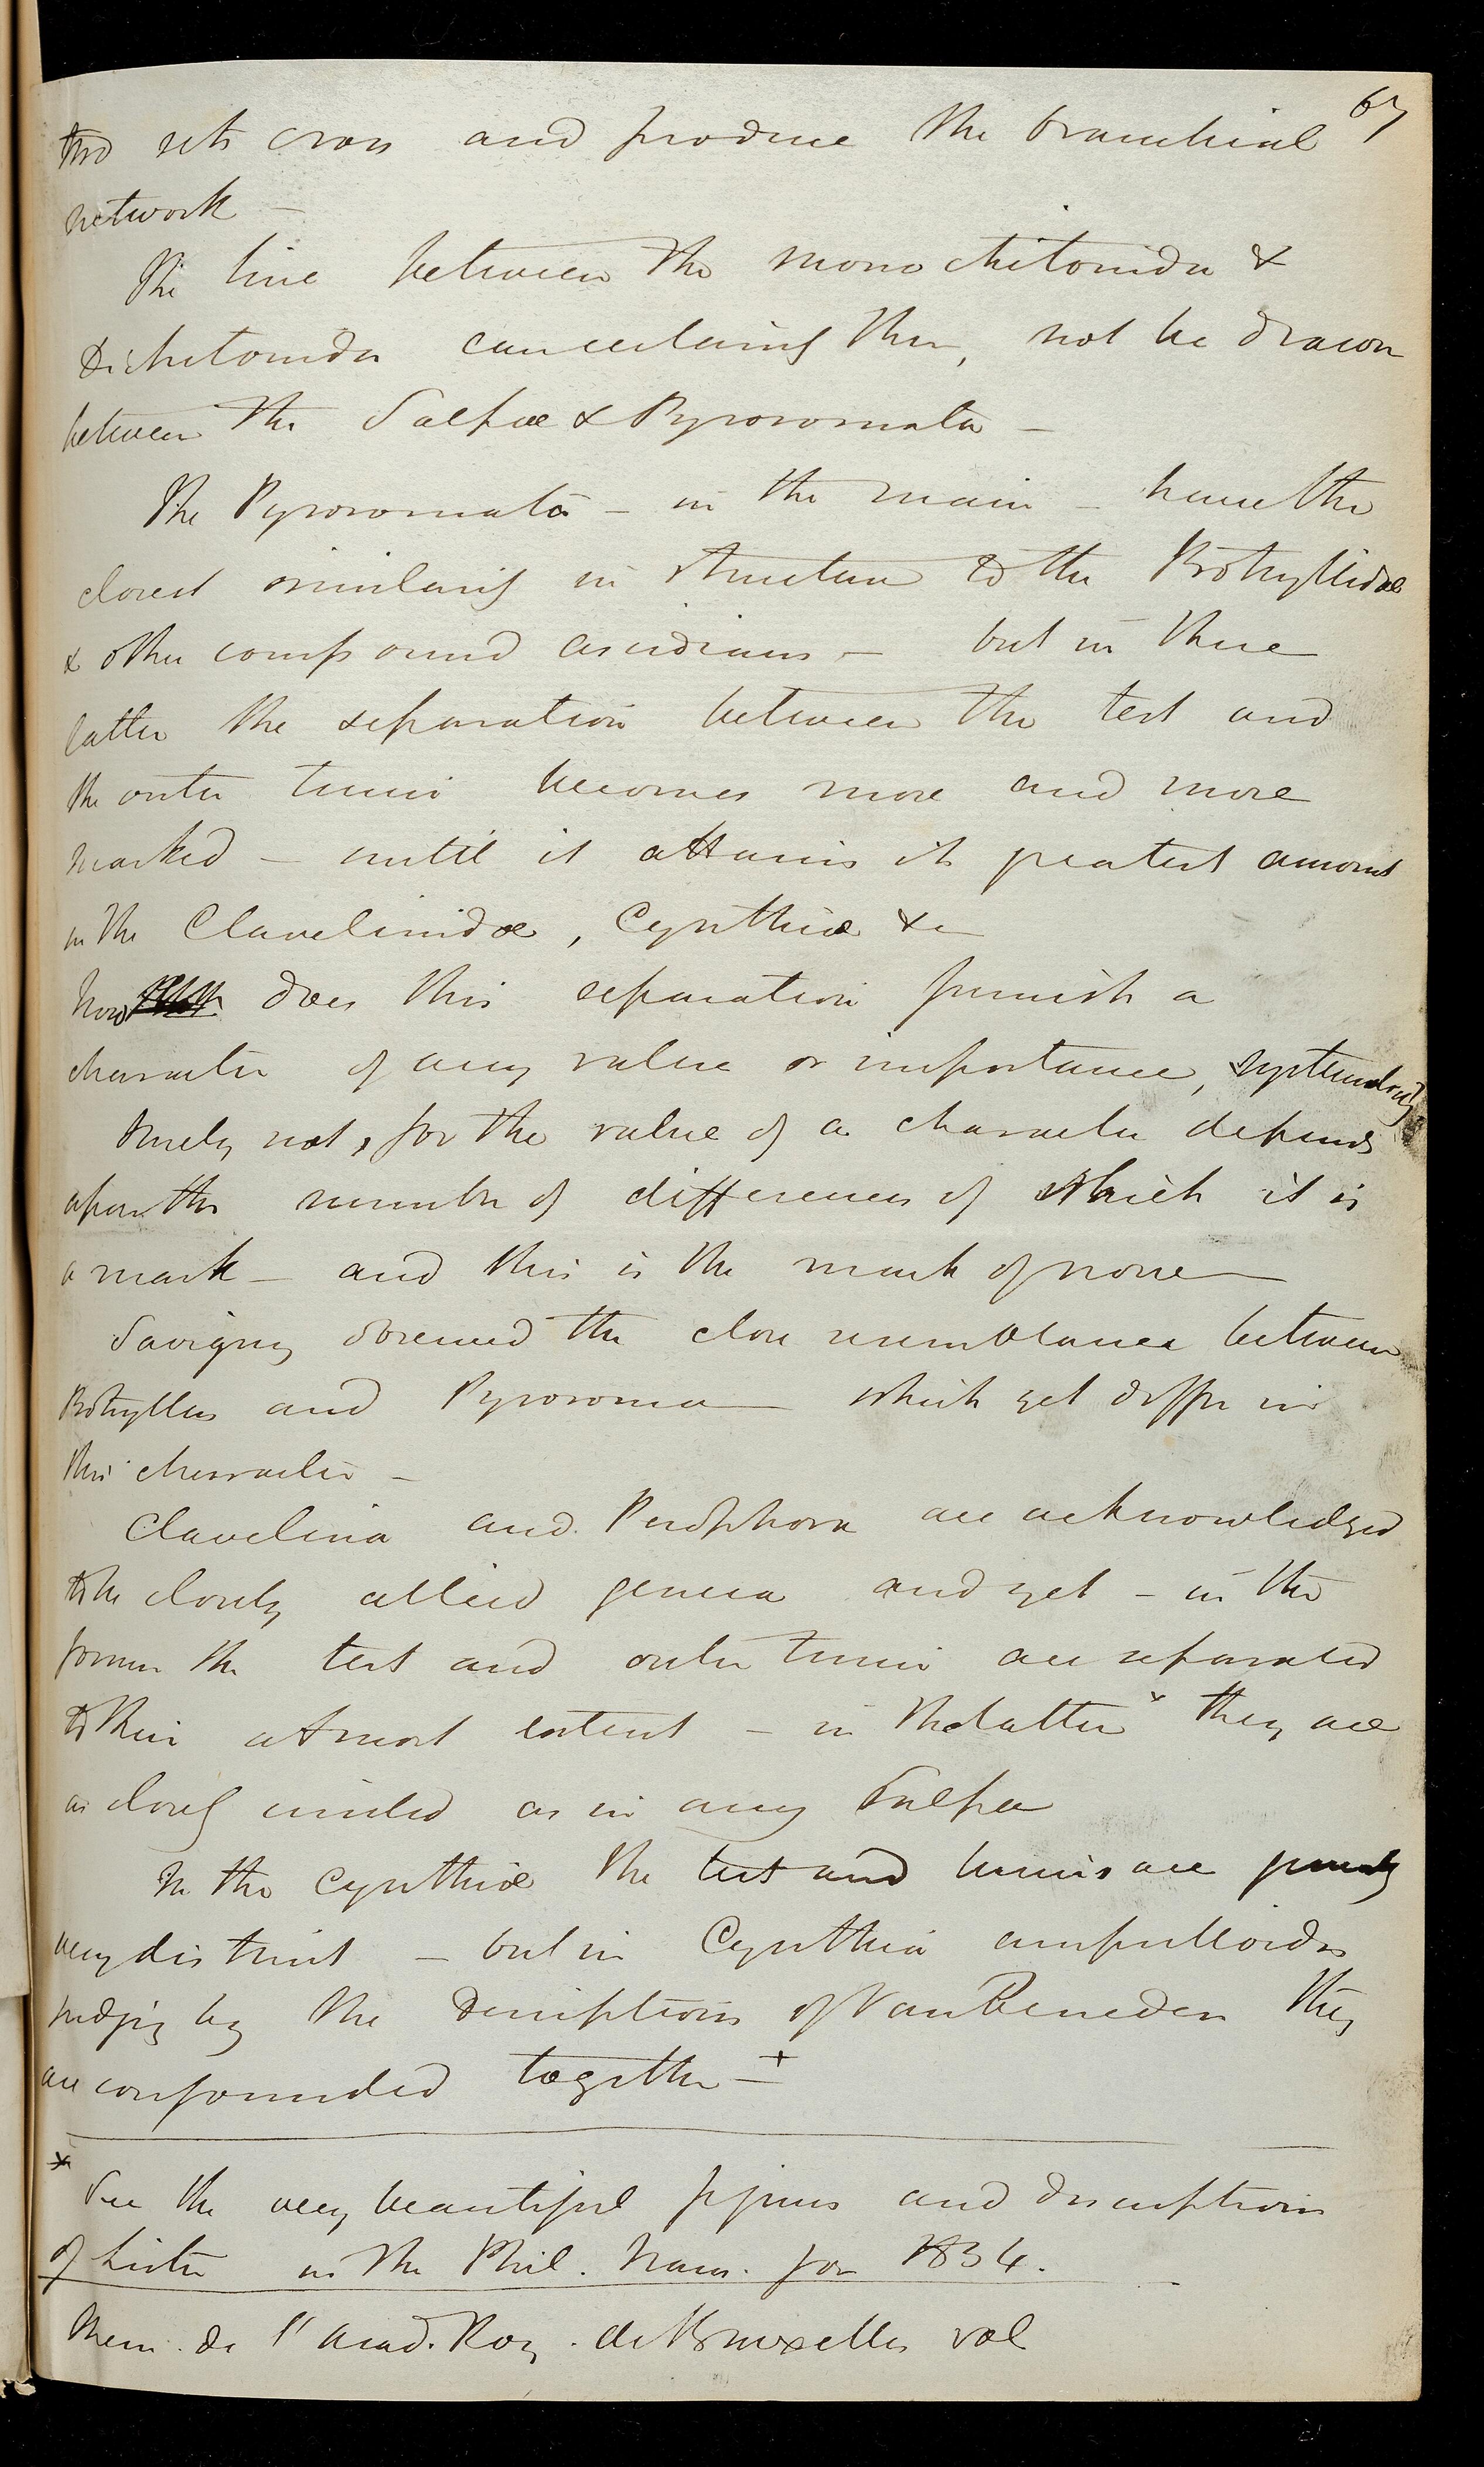 67
two sets cross and produce the branchial
network –
The line between the monochitonida &
Dichitonida can certainly then, not be drawn
between the Salpæ & Pyrosomata –
The Pyrosomata – in the main – have the
closest similarity in structure to the Botryllidæ
& other compound ascidians – but in these
latter the separation between the test and
the outer tunic becomes more and more
marked – until it attains its greatest amount
in the Clavelinidæ, Cynthiæ &c
Now does this separation furnish a
character of any value or importance, systematically?
Surely not, for the value of a character depends
upon the number of differences of which it is
a mark – and this is the mark of none –
Savigny observed the close resemblance between
Botryllus and Pyrosoma – which yet differ in
this character –
Clavelina and Perophora are acknowledged
to be closely allied genera and yet – in the
former the test and outer tunic are separated
to their utmost extent – in the latter x they are
as closely united as in any Salpa
In the Cynthiæ the test and tunics are generally
very distinct – but in Cynthia ampulloides
judging by the descriptions of Van Beneden they
are confounded together – +
x See the very beautiful figures and descriptions
of Lister in the Phil. Trans. for 1834.
Mem. de l'Acad. Roy. de Bruxelles vol